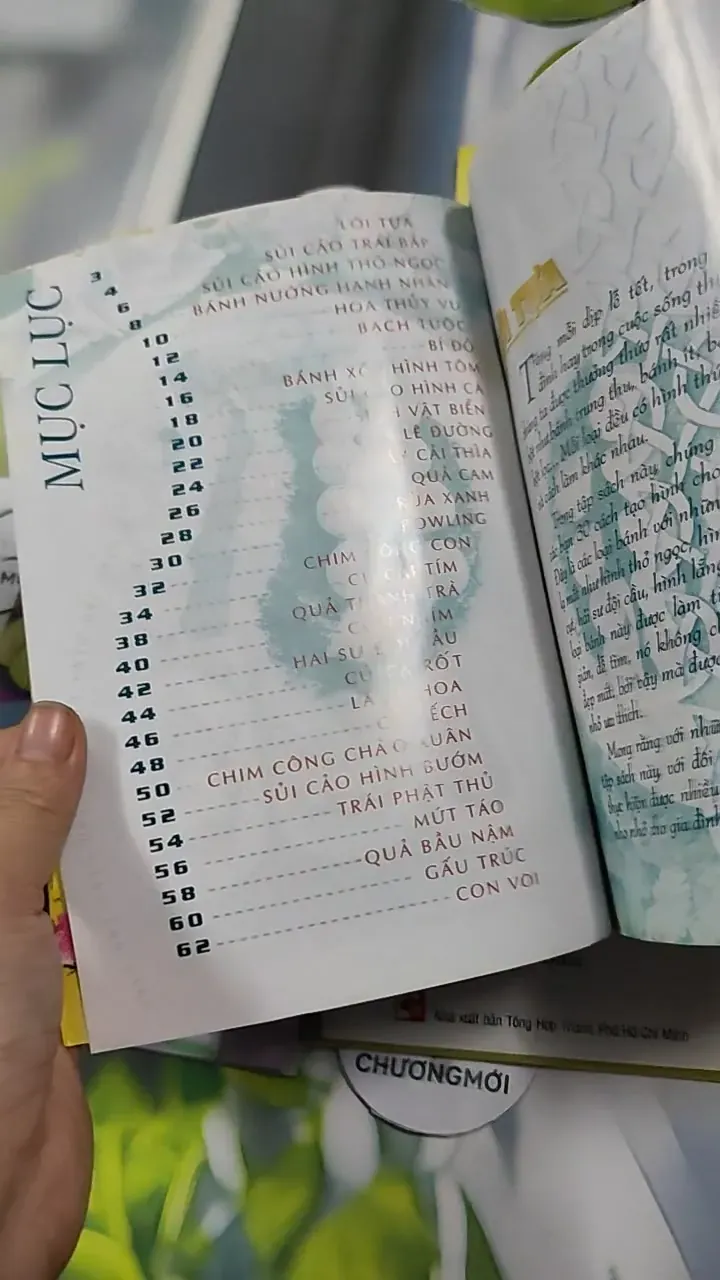 MỤC LỤC
3 LỜI TỰA
4 SỦI CẢO TRÁI BẮP
6 SỦI CẢO HÌNH THỎ NGỌC
8 BÁNH NƯỚNG HẠNH NHÂN
10 HOA THỦY VU
12 BẠCH TUỘC
14 BÍ ĐỎ
16 BÁNH HÌNH TÔM
18 SỦI HÌNH CÁ
20 VẬT BIỂN
22 LÊ ĐƯỜNG
24 CẢI THÌA
26 QUẢ CAM
28 XANH
30 BOWLING
32 CHIM CÔNG CON
34 TÍM
38 QUẢ THANH TRÀ
40
42 HAI SƯ
44 CỦ CÀ RỐT
46 HOA
48 ẾCH
50 CHIM CÔNG CHÀO XUÂN
52 SỦI CẢO HÌNH BƯỚM
54 TRÁI PHẬT THỦ
56 MỨT TÁO
58 QUẢ BẦU NẬM
60 GẤU TRÚC
62 CON VOI
Trong mỗi dịp lễ tết, trong
đình hay trong cuộc sống
được thưởng thức rất
như bánh trung thu, bánh ít,
Mỗi loại đều có hình
và cách làm khác nhau.
Trong tập sách này, chúng
các bạn 30 cách tạo hình cho
Đây là các loại bánh với những
lạ mắt như hình thỏ ngọc,
hải sư đội cầu, hình
loại bánh này được làm
giản, dễ tìm, nó không
đẹp mắt, bởi vậy mà được
nhỏ ưa thích.
Mong rằng với
tập sách này, với đôi
thực hiện được nhiều
nho nhỏ cho gia đình
Nhà xuất bản Tổng Hợp Thành Phố Hồ Chí Minh
CHƯƠNGMỚI